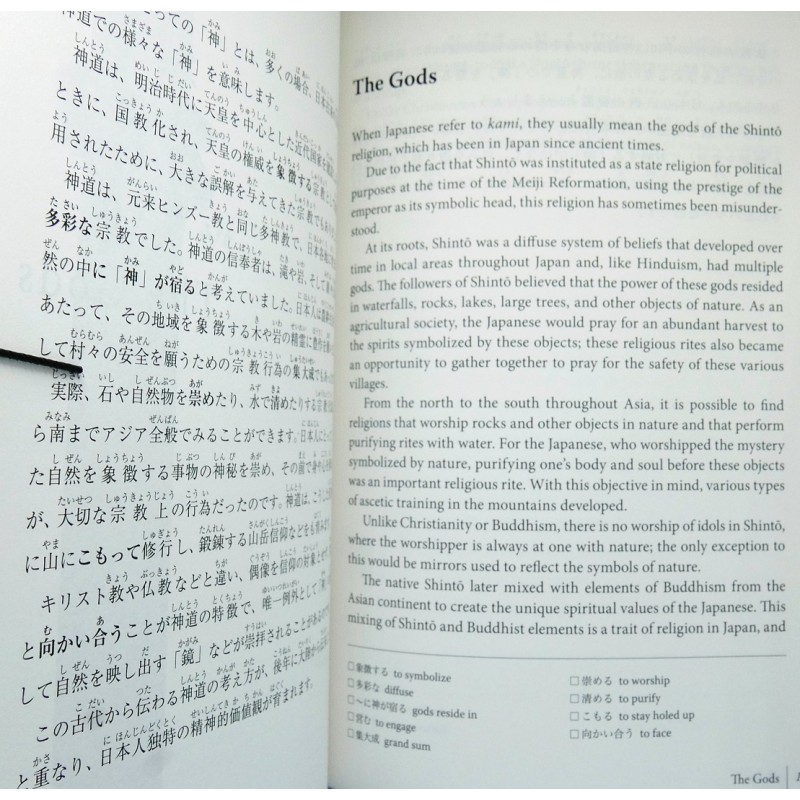 かみ おお ばあい
とっての「神」とは、多くの場合、日本
しんとう さまざま かみ いみ
神道での様々な「神」を意味します。
しんとう めいじじだい てんのう ちゅうしん
神道は、明治時代に天皇を中心とした近代国家を
こっきょうか てんのう けんい しょうちょう
ときに、国教化され、天皇の権威を象徴する宗教と
よう おお ごかい あた
用されたために、大きな誤解を与えてきた宗教でも
しんとう がんらい きょう おな たしんきょう
神道は、元来ヒンズー教と同じ多神教で、日本
たさい しゅうきょう しんとう しんぽうしゃ たき いわ
多彩な宗教でした。神道の信奉者は、滝や岩、そして
ぜん なか かみ やど かんが
然の中に「神」が宿ると考えていました。日本人は
ちいき しょうちょう き いわ せいれい
あたって、その地域を象徴する木や岩の精霊に豊作を
むらむら あんぜん ねが しゅうきょうこうい しゅうたいせい
して村々の安全を願うための宗教行為の集大成でも
じっさい いし しぜんぶつ あが みず きよ
実際、石や自然物を崇めたり、水で清めたりする宗教
みなみ ぜんぱん
ら南までアジア全般でみることができます。日本人に
しぜん しょうちょう じぶつ しんぴ あが まえ
た自然を象徴する事物の神秘を崇め、その前で身
たいせつ しゅうきょうじょう こうい
が、大切な宗教上の行為だったのです。神道は、
やま しゅぎょう たんれん さんがくしんこう
に山にこもって修行し、鍛錬する山岳信仰なども
きょう ぶっきょう ちが ぐうぞう しんこう たいしょう
キリスト教や仏教などと違い、偶像を信仰の対象と
む あ しんとう とくちょう ゆいいつれいがい
と向かい合うことが神道の特徴で、唯一例外として「
しぜん うつ だ かがみ すうはい
して自然を映し出す「鏡」などが崇拝されることが
こだい つた しんとう かんが かた こうねん
この古代から伝わる神道の考え方が、後年に大陸から
かさ にほんじんどくとく せいしんてきかちかん はぐく
と重なり、日本人独特の精神的価値観が育まれます。
The Gods
When Japanese refer to kami, they usually mean the gods of the Shintō
religion, which has been in Japan since ancient times.
Due to the fact that Shintō was instituted as a state religion for political
purposes at the time of the Meiji Reformation, using the prestige of the
emperor as its symbolic head, this religion has sometimes been misunder-
stood.
At its roots, Shintō was a diffuse system of beliefs that developed over
time in local areas throughout Japan and, like Hinduism, had multiple
gods. The followers of Shintō believed that the power of these gods resided
in waterfalls, rocks, lakes, large trees, and other objects of nature. As an
agricultural society, the Japanese would pray for an abundant harvest to
the spirits symbolized by these objects; these religious rites also became
an opportunity to gather together to pray for the safety of these various
villages.
From the north to the south throughout Asia, it is possible to find
religions that worship rocks and other objects in nature and that perform
purifying rites with water. For the Japanese, who worshipped the mystery
symbolized by nature, purifying one's body and soul before these objects
was an important religious rite. With this objective in mind, various types
of ascetic training in the mountains developed.
Unlike Christianity or Buddhism, there is no worship of idols in Shintō,
where the worshipper is always at one with nature; the only exception to
this would be mirrors used to reflect the symbols of nature.
The native Shintō later mixed with elements of Buddhism from the
Asian continent to create the unique spiritual values of the Japanese. This
mixing of Shintō and Buddhist elements is a trait of religion in Japan, and
□象徴する to symbolize
□多彩な diffuse
□〜に神が宿る gods reside in
□営む to engage
□集大成 grand sum
□崇める to worship
□清める to purify
□こもる to stay holed up
□向かい合う to face
The Gods